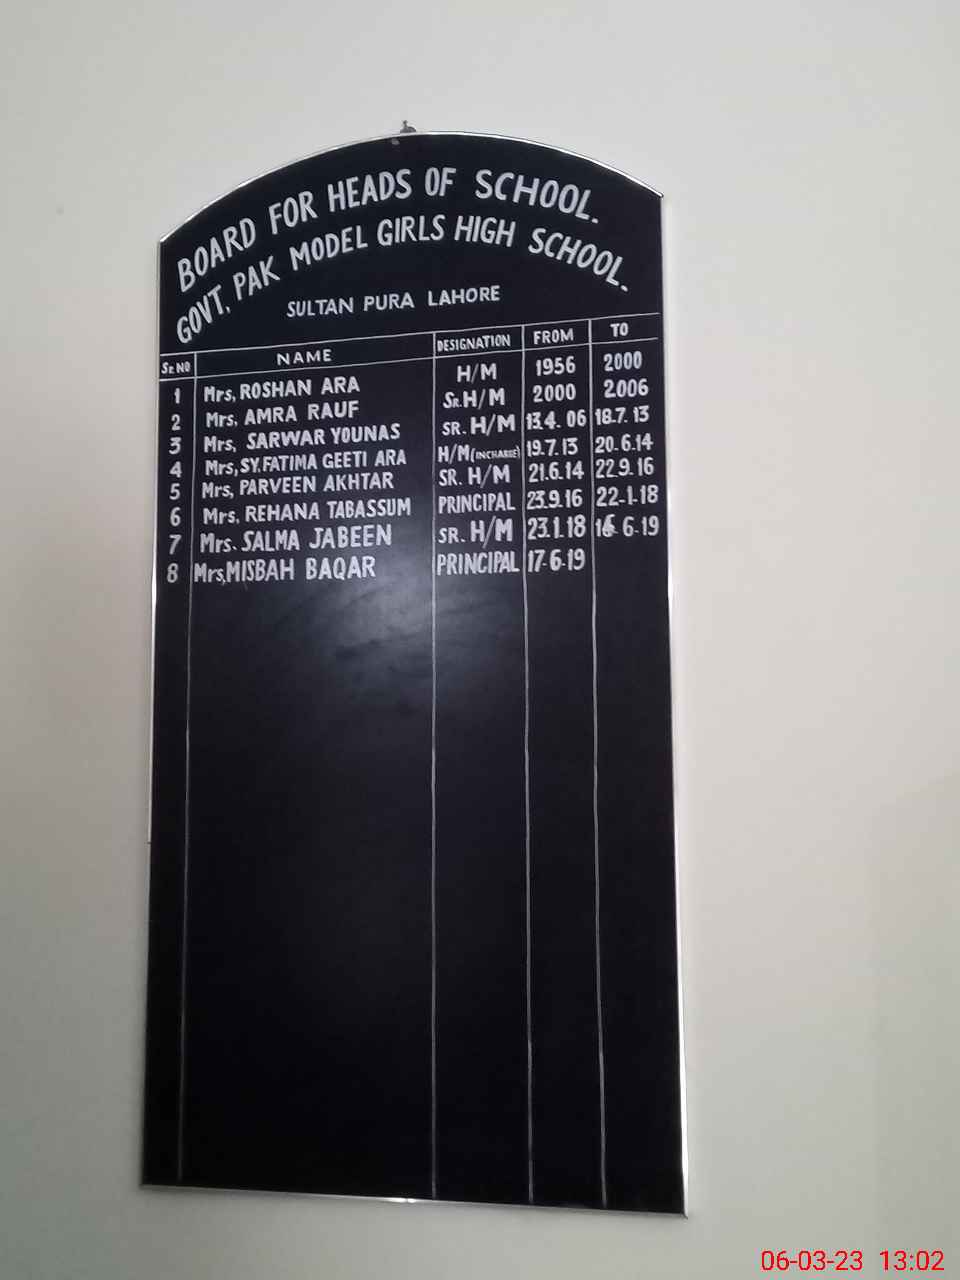 BOARD FOR HEADS OF SCHOOL.
GOVT, PAK MODEL GIRLS HIGH SCHOOL.
SULTAN PURA LAHORE
Sr. NO NAME DESIGNATION FROM TO
1 Mrs, ROSHAN ARA H/M 1956 2000
2 Mrs, AMRA RAUF Sr. H/M 2000 2006
3 Mrs, SARWAR YOUNAS SR. H/M 13.4.06 18.7.13
4 Mrs, SY.FATIMA GEETI ARA H/M (INCHARGE) 19.7.13 20.6.14
5 Mrs, PARVEEN AKHTAR SR. H/M 21.6.14 22.9.16
6 Mrs, REHANA TABASSUM PRINCIPAL 23.9.16 22-1-18
7 Mrs. SALMA JABEEN SR. H/M 23.1.18 16-6-19
8 Mrs, MISBAH BAQAR PRINCIPAL 17-6-19
06-03-23 13:02